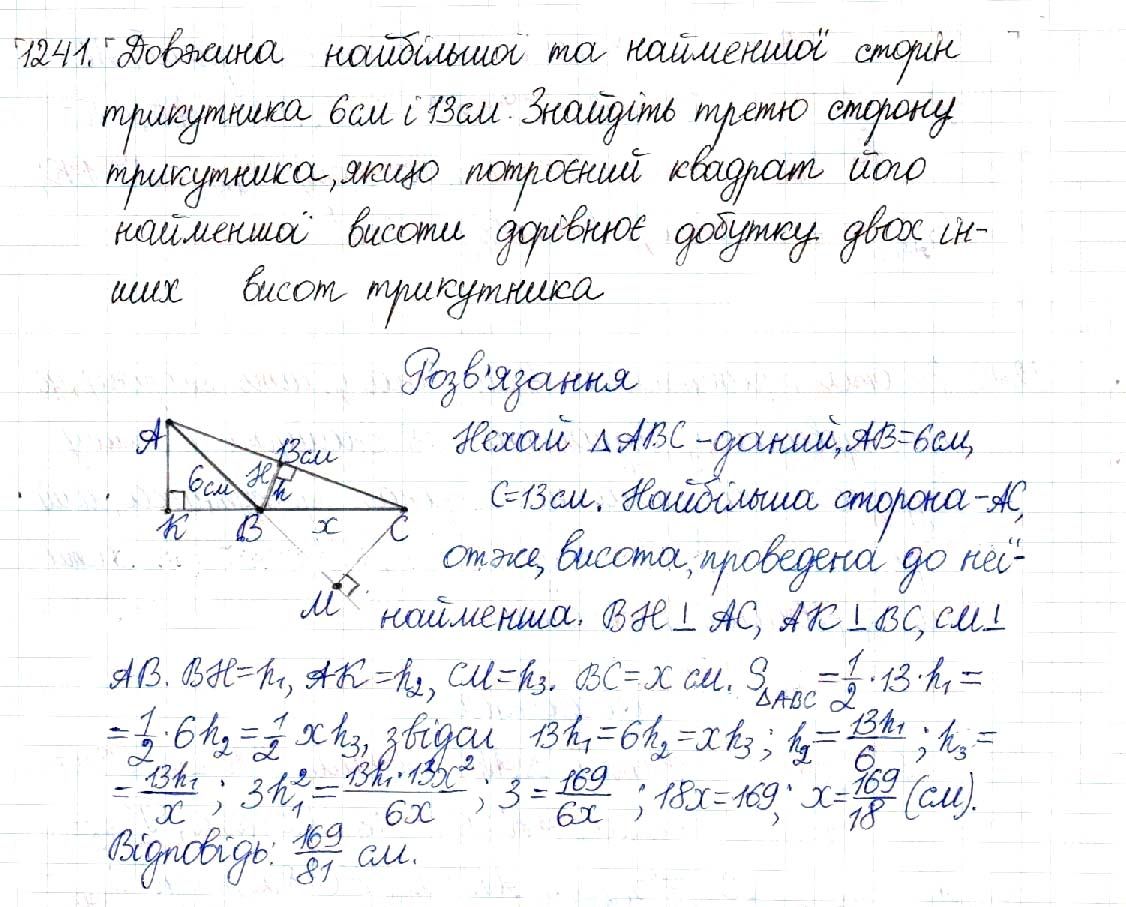 1241. Довжина найбільшої та найменшої сторін
трикутника 6см і 13см. Знайдіть третю сторону
трикутника, якщо потроєний квадрат його
найменшої висоти дорівнює добутку двох ін-
ших висот трикутника
Розв'язання
A 13см 6см H h K B x C M
Нехай △ABC - даний, AB=6см,
C=13см. Найбільша сторона - AC,
отже, висота, проведена до неї -
найменша. BH⊥AC, AK⊥BC, CM⊥
AB. BH=h₁, AK=h₂, CM=h₃. BC=x см. S△ABC = 1/2·13·h₁ =
= 1/2·6h₂ = 1/2 xh₃, звідси 13h₁=6h₂=xh₃; h₂= 13h₁/6; h₃=
= 13h₁/x; 3h₁² = 13h₁·13x²/6x; 3 = 169/6x; 18x=169; x= 169/18 (см).
Відповідь: 169/81 см.